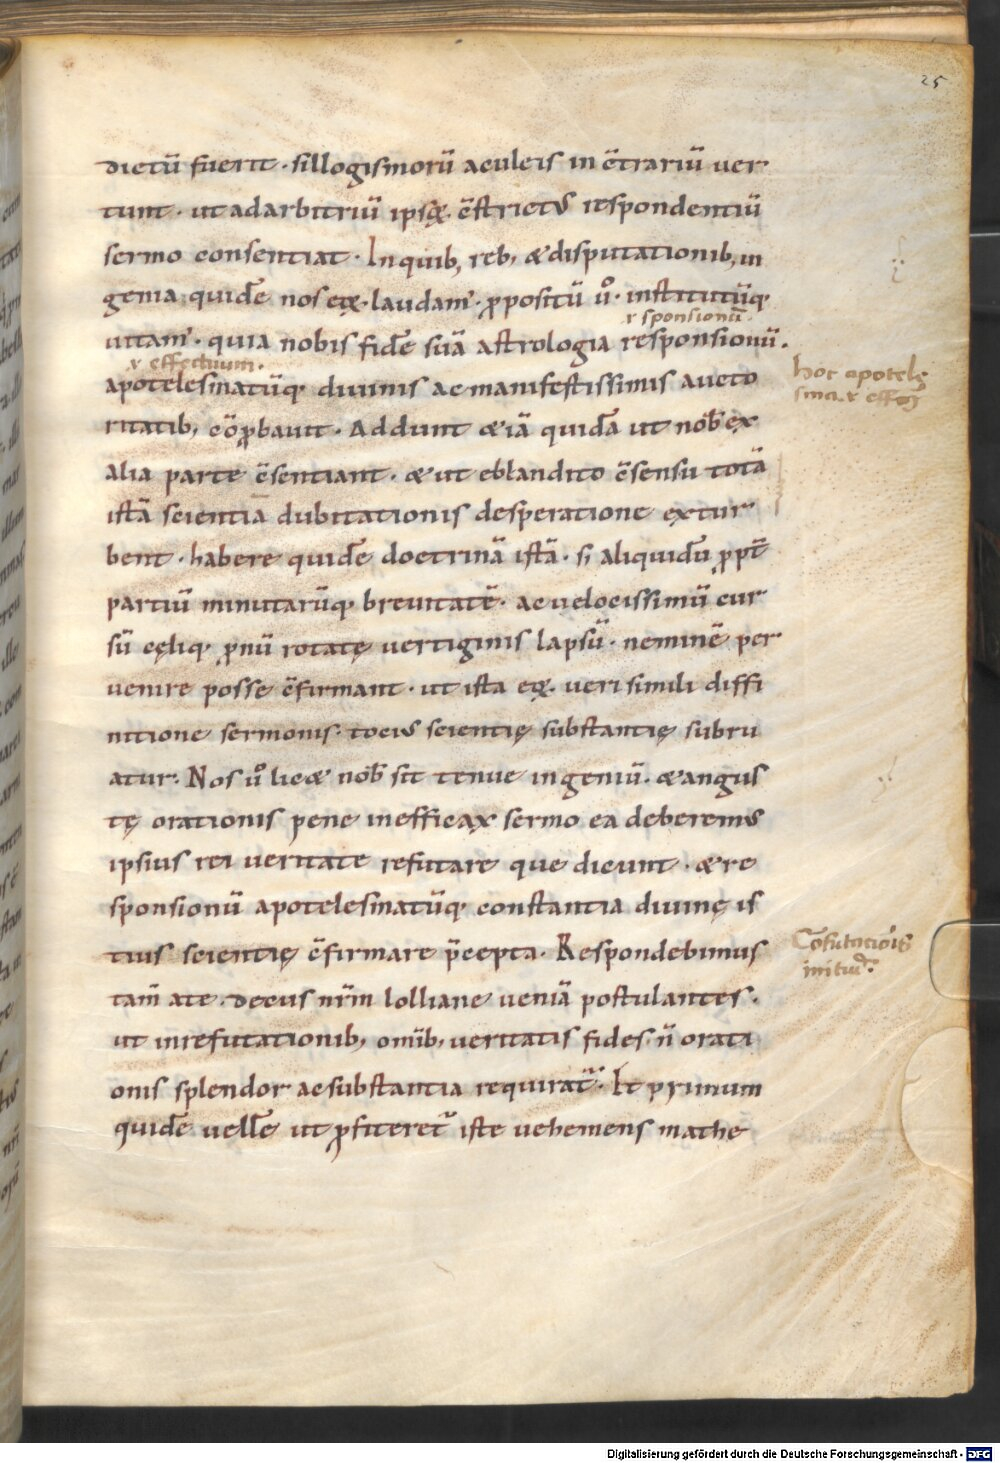 25
dictū fuerit · sillogismorū aculeis in c̄trariū ver
tunt · ut ad arbitriū ipsę · c̄strictus respondentiū
sermo consentiat · In quib; reb; & disputationib; in
genia quidē nos eoꝝ laudam̄ · ꝓpositū u̓o · institutūq;
r sponsionū
uitam̄ · quia nobis fidē suā astrologia responsionū ·
r effectuum ·
apotelesmatūq; diuinis ac manifestissimis aucto
hoc apotele
sma. r effec
ritatib; cōꝓbauit · Addunt & iā quidā ut nob̄ ex
alia parte c̄sentiant · & ut eblandito c̄sensu totā
istā scientiā dubitationis desperatione extur
bent · habere quidē doctrinā istā · si aliquidū ꝓpt̄
partiū minutarūq; breuitatē · ac uelocissimū cur
sū cęliq; ꝓnū rotatę uertiginis lapsū · neminē per
uenire posse c̄firmant · ut ista eoꝝ uerisimili diffi
nitione sermonis · tocius scientię substantię subru
atur · Nos u̓o lic& nob̄ sit tenue ingeniū · & angus
tę orationis pene inefficax sermo ea deberemus
ipsius rei ueritate refutare que dicunt · & re
sponsionū apotelesmatūq; constantia diuinę is
tius scientię c̄firmare p̄cepta · Respondebimus
Cōfutaciōis
initiū ·
tam̄ ate · decus nr̄m lolliane ueniā postulantes ·
ut in refutationib; omīb; ueritatis fides · n̄ orati
onis splendor ac substantia requirat̄ · Et primum
quidē uellē ut ꝓfiteret̄ iste uehemens mathe
Digitalisierung gefördert durch die Deutsche Forschungsgemeinschaft - DFG